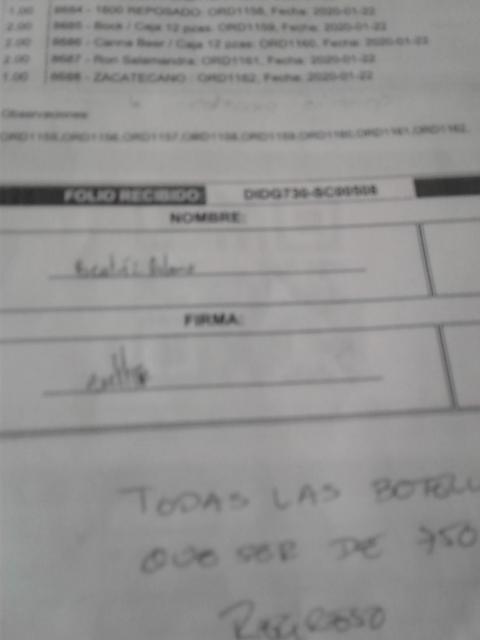 1.00 8684 - 1800 REPOSADO: ORD1158, Fecha: 2020-01-22
2.00 8685 - Bock / Caja 12 pzas: ORD1159, Fecha: 2020-01-22
2.00 8686 - Canna Beer / Caja 12 pzas: ORD1160, Fecha: 2020-01-22
2.00 8687 - Ron Salamandra: ORD1161, Fecha: 2020-01-22
1.00 8688 - ZACATECANO : ORD1162, Fecha: 2020-01-22
Observaciones:
ORD1155,ORD1156,ORD1157,ORD1158,ORD1159,ORD1160,ORD1161,ORD1162,
FOLIO RECIBIDO: DIDG730-SC00508
NOMBRE:
Beatriz
FIRMA:
TODAS LAS BOTELL
QUE SER DE 750
REGRESO